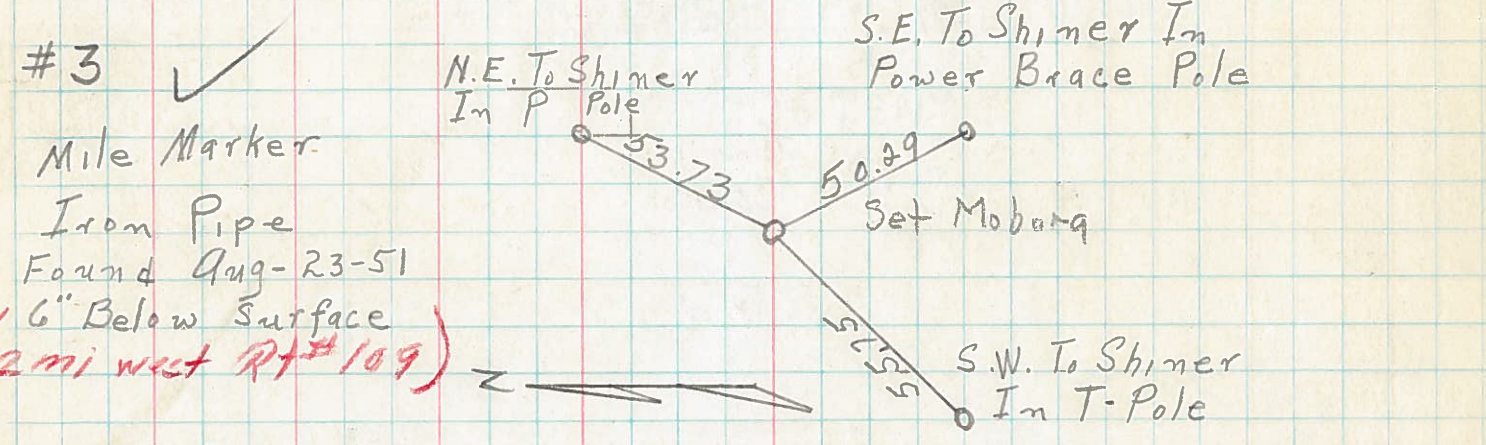 #3 ✓
Mile Marker
Iron Pipe
Found Aug-23-51
6" Below Surface
2 mi west Rt #109)
N.E. To Shiner
In P Pole
53.73
S.E. To Shiner In
Power Brace Pole
50.29
Set Moborg
55.55
S.W. To Shiner
In T-Pole
N